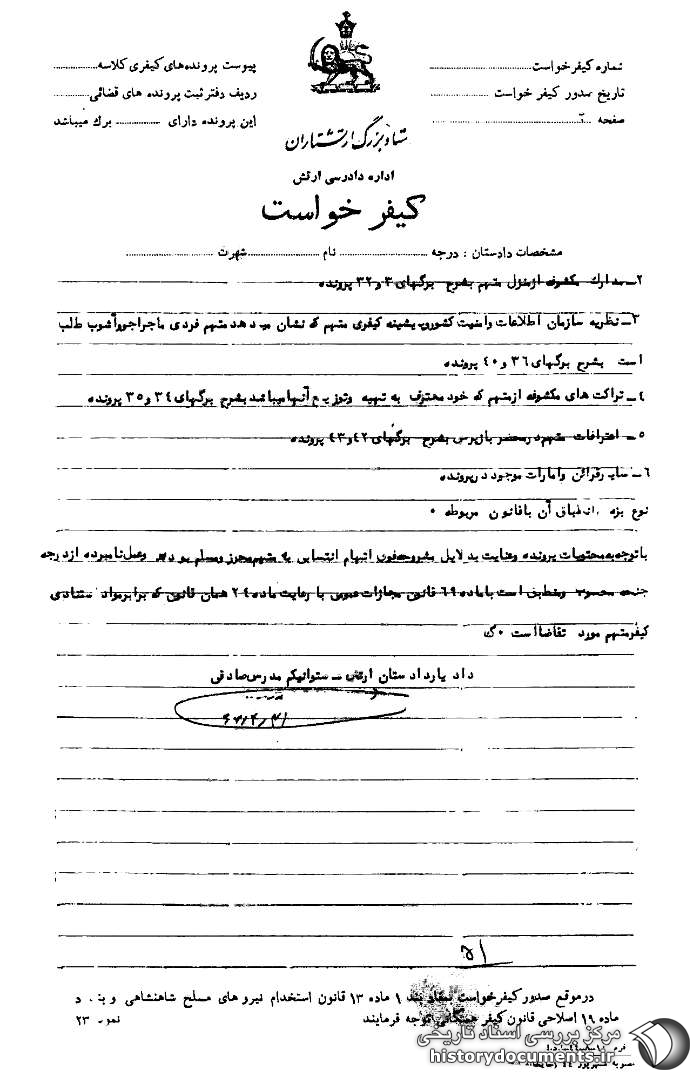 شماره کیفرخواست
پیوست پرونده‌های کیفری کلاسه
تاریخ صدور کیفر خواست
ردیف دفتر ثبت پرونده های قضائی
صفحه ۲
این پرونده دارای برگ میباشد
ستاد بزرگ ارتشتاران
اداره دادرسی ارتش
کیفر خواست
مشخصات دادستان : درجه نام شهرت
۲ــ مدارک مکشوفه ازمنزل متهم بشرح برگهای ۳ و ۳۲ پرونده
۳ــ نظریه سازمان اطلاعات وامنیت کشورو پیشینه کیفری متهم که نشان میدهد متهم فردی ماجراجو وآشوب طلب
است بشرح برگهای ۳۶ و ۴۰ پرونده
۴ــ تراکت های مکشوفه ازمتهم که خود معترف به تهیه وتوزیع آنها میباشد بشرح برگهای ۳۴ و ۳۵ پرونده
۵ــ اعترافات متهم در محضر بازپرس بشرح برگهای ۴۲ و ۴۳ پرونده
۶ــ سایر قرائن وامارات موجود درپرونده
نوع بزه وانطباق آن باقانون مربوطه ۰
باتوجه به محتویات پرونده وعنایت بدلایل مشروحه فوق اتهام انتسابی به متهم محرز ومسلم بوده وعمل نامبرده ازدرجه
جنحه محسوب ومنطبق است باماده ۶۹ قانون مجازات عمومی با رعایت ماده ۲۴ همان قانون که برابر مواد استنادی
کیفر متهم مورد تقاضا است ۰ گ
داد یار دادستان ارتش ــ ستوانیکم مدرس صادقی
۵۱
درموقع صدور کیفرخواست بند ۱ ماده ۱۳ قانون استخدام نیرو های مسلح شاهنشاهی و بند د
ماده ۱۹ اصلاحی قانون کیفر همگانی توجه فرمایند
۲۳
مرکز بررسی اسناد تاریخی
historydocuments.ir